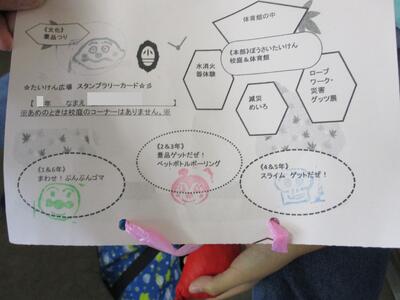 《文化》
景品つり
体育館の中
《本部》ぼうさいたいけん
校庭&体育館
水消火
器体験
減災
めいろ
ロープ
ワーク・
災害
グッツ展
☆たいけん広場 スタンプラリーカード☆彡
【 年 なまえ
※あめのときは校庭のコーナーはありません。※
《1&6年》
まわせ!ぶんぶんゴマ
《2&3年》
景品ゲットだぜ!
ペットボトルボーリング
《4&5年》
スライム ゲットだぜ!